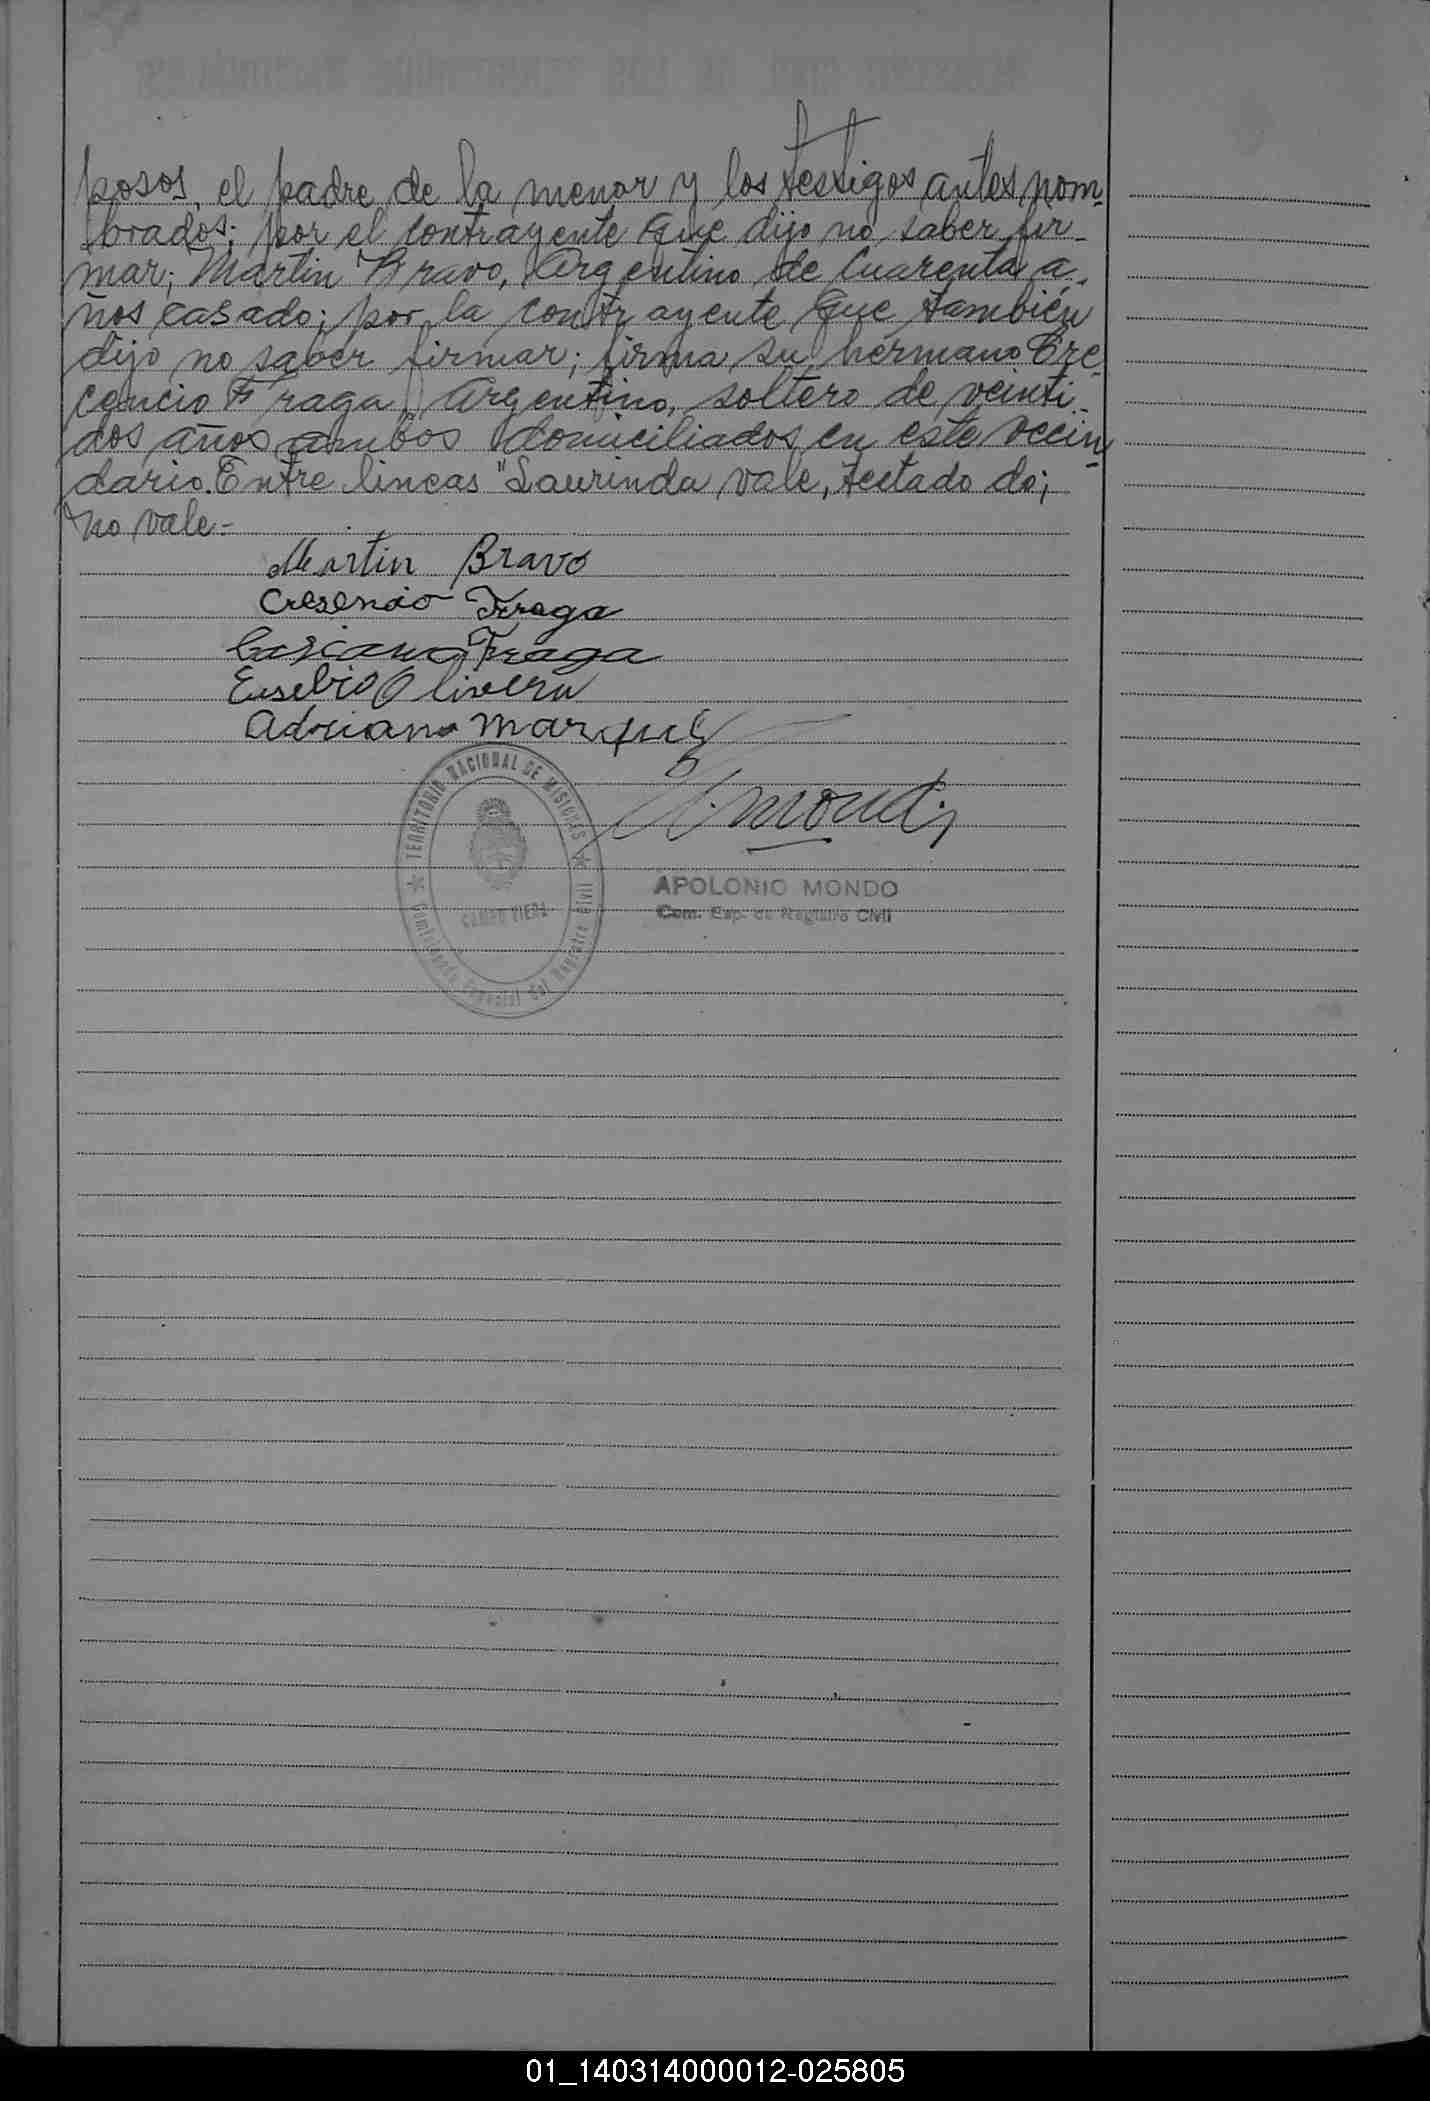 posos, el padre de la menor y los testigos antes nom-
brados; por el contrayente que dijo no saber fir-
mar; Martin Bravo, Argentino de cuarenta a-
ños casado; por la contrayente que también
dijo no saber firmar; firma su hermano Cre-
cencio Fraga, Argentino, soltero de veinti-
dos años ambos domiciliados en este vecin-
dario. Entre lineas "Laurinda vale, testado do;
no vale.-
Martin Bravo
Cresencio Fraga
Casiano Fraga
Eusebio Olivera
Adriano Marques
A. Mondo
TERRITORIO NACIONAL DE MISIONES
CAMPO VIERA
Comisionado Especial del Registro Civil
APOLONIO MONDO
Com. Esp. de Registro Civil
01_140314000012-025805